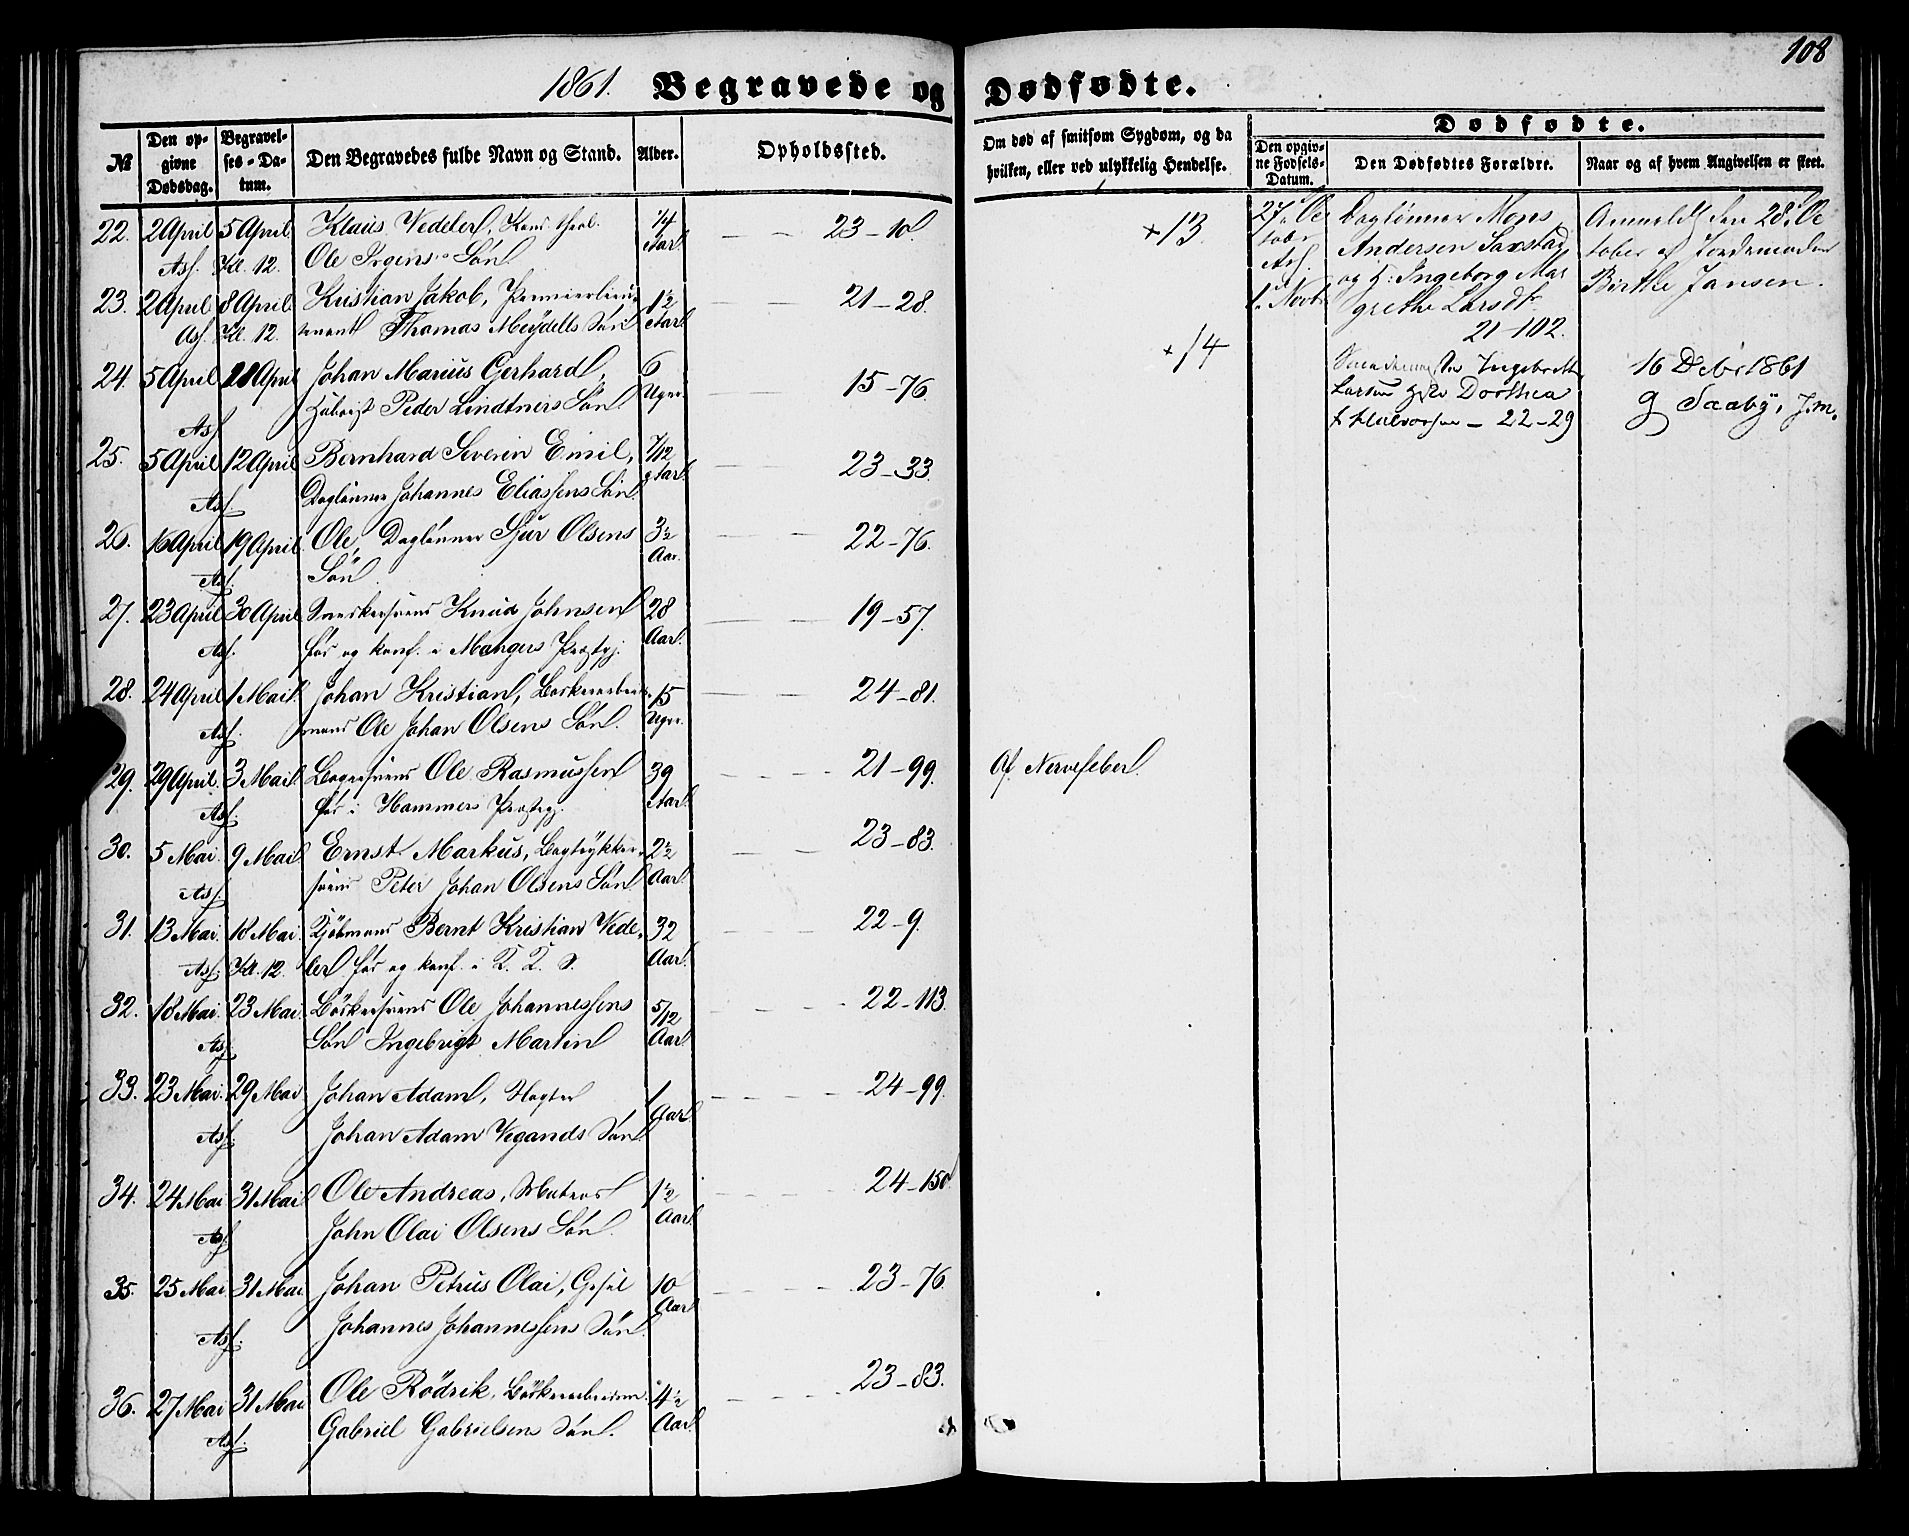 108
1861. Begravede og Dødfødte.
№
Den opgivne Dødsdag.
Begravelses-Datum.
Den Begravedes fulde Navn og Stand.
Alder.
Opholdssted.
Om død af smitsom Sygdom, og da
hvilken, eller ved ulykkelig Hendelse.
Dødfødte.
Den opgivne Fødsels-Datum.
Den Dødfødtes Forældre.
Naar og af hvem Angivelsen er skeet.
22. 2 April 5 April Klaus Vedeler, Kand. theol. 1/4 Aar 23-10.
Asf. Kl. 12. Ole Irgens' Søn
23. 2 April 8 April Kristian Jakob, Premierlieu- 1½ Aar 21-28.
Asf. Kl. 12. tenant Thomas Meydells Søn
24. 5 April Johan Marius Gerhard, 6 Uger. 15-76.
Asf. Peder Lindtners Søn.
25. 5 April 12 April Bernhard Severin Emil, 7/12 Aar 23-33.
Asf. Daglønner Johannes Eliassens Søn.
26. 16 April 19 April Ole, Daglønner Sjur Olsens 3½ Aar. 22-76.
Asf. Søn
27. 23 April 30 April Knud Johnsen 28 Aar. 19-57.
Asf. før og konf. i Mangers Præstgj.
28. 24 April 1 Mai Johan Kristian, 15 Uger. 24-81.
Asf. mand Ole Johan Olsens Søn.
29. 29 April. 3 Mai Ole Rasmussen 39 Aar. 21-99. Af Nervefeber.
Asf. før i Hammers Præstgj.
30. 5 Mai 9 Mai Ernst Markus, Bogtrykker- 2½ Aar. 23-83.
Asf. svend Peter Johan Olsens Søn
31. 13 Mai. 18 Mai Kjøbmand Bernt Kristian Vede- 32 Aar. 22-9.
Asf. Kl. 12. ler før og konf. i
32. 18 Mai. 23 Mai. Bødkersvend Ole Johannessens 5/12 Aar. 22-113.
Asf. Søn Ingebrigt Martin
33. 23 Mai. 29 Mai Johan Adam, Slagter 1 Aar. 24-99.
Asf. Johan Adam Wegands Søn
34. 24 Mai 31 Mai Ole Andreas, Matros 1½ Aar. 24-150
Asf. John Olai Olsens Søn.
35. 25 Mai 31 Mai Johan Petrus Olai, 10 Aar 23-76.
Asf. Johannes Johannessens Søn.
36. 27 Mai 31 Mai Ole Rødrik, 4½ Aar. 23-83.
Asf. Gabriel Gabrielsens Søn.
+13. 27. Oc- Dagløner Moses Anmeldt den 28. Oc-
tober Andersen Saxstad tober af Jordemoder
Asf. og H. Ingeborg Mar- Birthe Jansen.
1. Novb. grethe Larsdtr
21-102.
+14 Ingebreth 16 Debr 1861
Larsen Dorthea G Saaby, J.m.
Halvorsen - 22-29